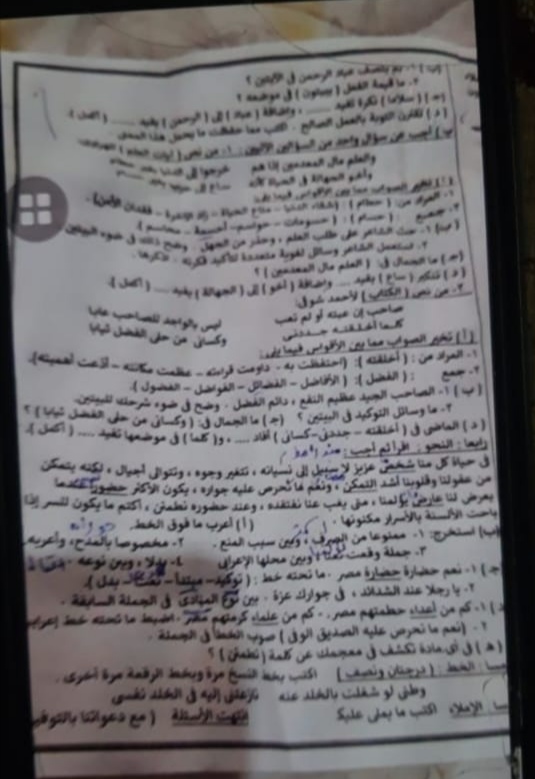 (ب) ١- بم يتصف عباد الرحمن في الآيتين ؟
٢. ما قيمة الفعل ( يبيتون ) في موضعه ؟
(جـ) ( سلاما ) نكرة تفيد ........ ، وإضافة ( عباد ) إلى ( الرحمن ) يفيد ........ ( أكمل ).
( د ) تقترن التوبة بالعمل الصالح . اكتب مما حفظت ما يحمل هذا المعنى .
ب ) أجب عن سؤال واحد من السؤالين الآتيين : ١- من نص ( العلم )
والعلم مال المعدمين إذا هم خرجوا إلى الدنيا بغير حطام
وأخو الجهالة في الحياة كأنه ساع إلى حرب بغير
( أ ) تخير الصواب مما بين الأقواس فيما يلي:
١- المراد من : ( حطام ) : ( متاع الحياة - زاد الآخرة - فقدان الأمن ) .
٢. جمع : ( حسام ) : ( حسومات - حواسم - أحسمة - محاسم ).
(ب) ١- حث الشاعر على طلب العلم ، وحذر من الجهل . وضح ذلك في ضوء البيتين
٢. استعمل الشاعر وسائل لغوية متعددة لتأكيد فكرته . اذكرها .
(جـ) ما الجمال في : ( العلم مال المعدمين ) ؟
( د ) تنكير ( ساع ) يفيد .... وإضافة ( أخو ) إلى ( الجهالة ) يفيد .... ( أكمل ).
٢- من نص ( الكتاب ) لأحمد شوقي:
صاحب إن عبته أو لم تعب ليس بالواجد للصاحب عابا
كلما أخلقته جددني وكساني من حلى الفضل ثيابا
( أ ) تخير الصواب مما بين الأقواس فيما يلي:
١- المراد من : ( أخلقته ): ( احتفظت به - داومت قراءته - عظمت مكانته - أهميته ).
٢- جمع : ( الفضل ): ( الأفاضل - الفضائل - الفواضل - الفضول ).
( ب ) ١- الصاحب الجيد عظيم النفع ، دائم الفضل . وضح في ضوء شرحك للبيتين.
٢- ما وسائل التوكيد في البيتين ؟ (جـ) ما الجمال في : ( وكساني من حلى الفضل ثيابا ) ؟
( د ) الماضي في ( أخلقته - جددني - كساني ) أفاد .... ، و( كلما ) في موضعها تفيد .... ( أكمل ).
رابعا : النحو : اقرأ ثم أجب :
في حياة كل منا شخص عزيز لا سبيل إلى نسيانه ، تتغير وجوه ، وتتوالى أجيال ، لكنه يتمكن
من عقولنا وقلوبنا أشد التمكن ، ونعم ما نحرص عليه جواره ، يكون الأكثر حضورا عندما
يعرض لنا عارض يؤلمنا ، متى يغب عنا نفتقده ، وعند حضوره نطمئن ، أكتم ما يكون للسر إذا
باحت الألسنة بالأسرار مكنونها . ( أ ) أعرب ما فوق الخط.
(ب) استخرج: ١- ممنوعا من الصرف ، وبين سبب المنع . ٢- مخصوصا بالمدح ، وأعربه.
٣- جملة وقعت نعتا ، وبين محلها الإعرابي ٤- بدلا ، وبين نوعه .
(جـ) ١- نعم حضارة حضارة مصر . ما تحته خط : ( توكيد - مبتدأ - - بدل ).
٢. يا رجلا عند الشدائد ، في جوارك عزة . بين نوع المنادى في الجملة السابقة .
١- كم من أعداء حطمتهم مصر . - كم من علماء كرمتهم مصر . اضبط ما تحته خط
٢- ( نعم ما تحرص عليه الصديق الوفي ) صوب الخطأ في الجملة .
( هـ ) في أي مادة تكشف في معجمك عن كلمة ( نطمئن ) ؟
الخط : ( درجتان ونصف ) اكتب بخط النسخ مرة وبخط الرقعة مرة أخرى .
وطني لو شغلت بالخلد عنه نازعتني إليه في الخلد نفسي
الإملاء : اكتب ما يملى عليك
انتهت الأسئلة ( مع دعواتنا بالتوفيق